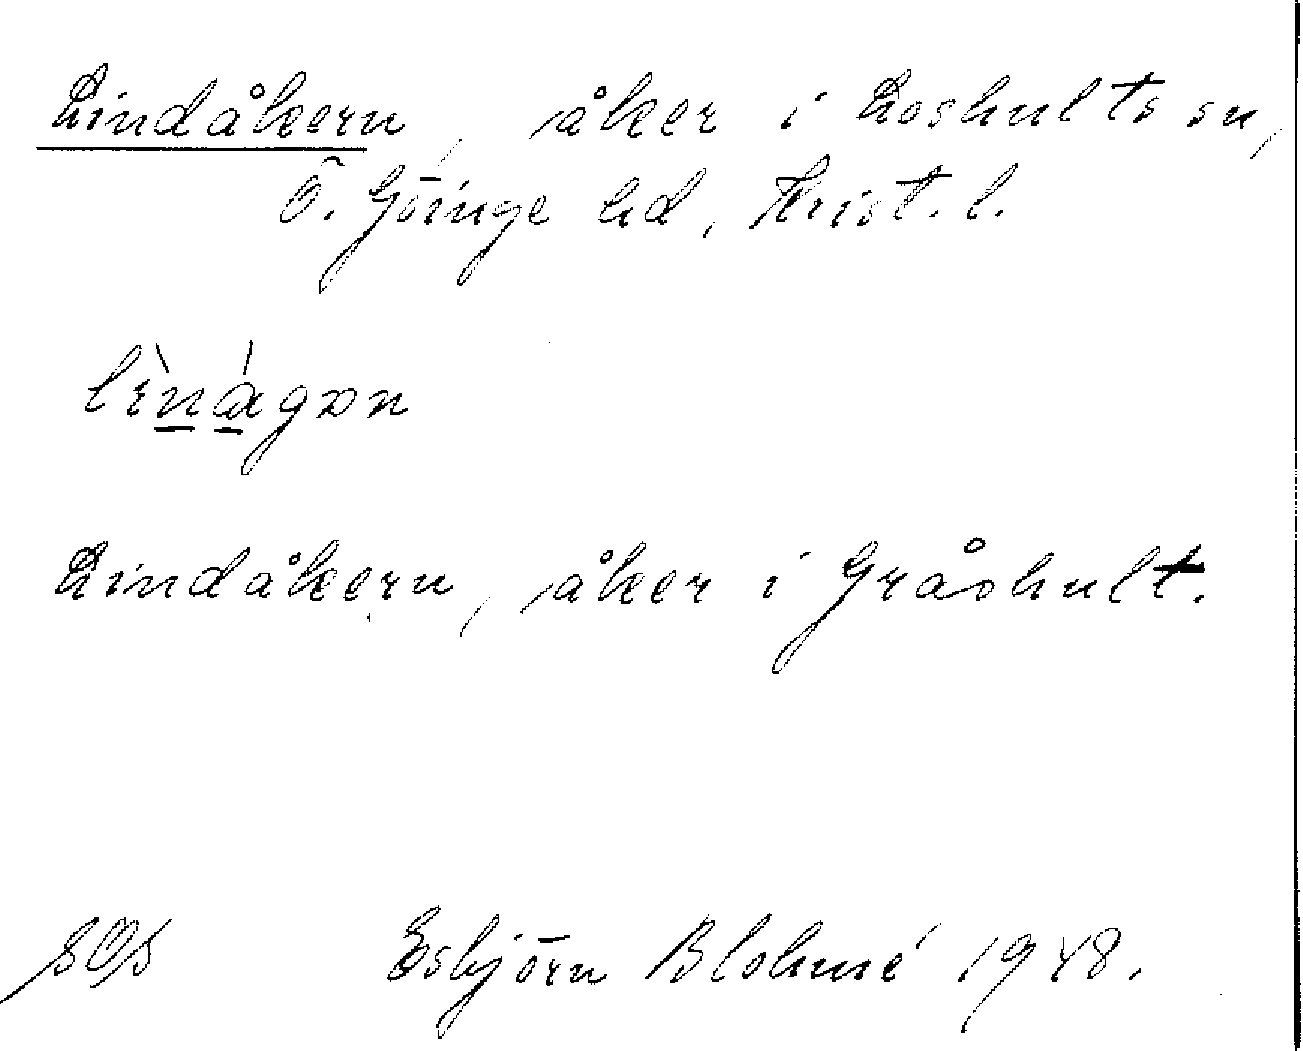 Lindåkern, åker i Loshults sn,
Ö. Göinge hd, Krist. l.
lìnágən
Lindåkern, åker i Gråshult.
Esbjörn Blohmé 1948.